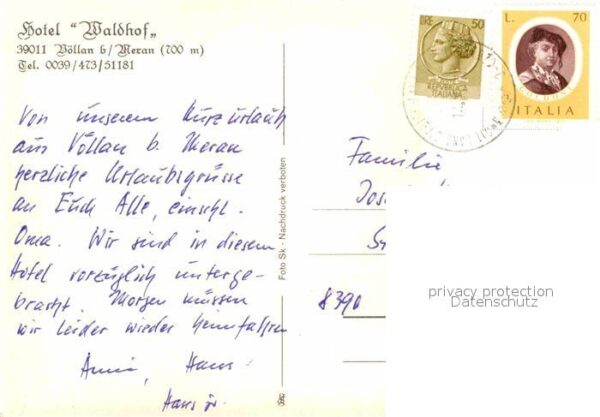 Hotel "Waldhof"
39011 Völlan b/Meran (700 m)
Tel. 0039/473/51181
Von unserem Kurzurlaub
aus Völlan b. Meran
herzliche Urlaubsgrüsse
an Euch Alle, einschl.
Oma. Wir sind in diesem
Hotel vorzüglich unterge-
bracht. Morgen müssen
wir leider wieder heimfahren
Anni, Hans
Hans jr.
Foto Sk - Nachdruck verboten
LIRE 50
REPUBBLICA
ITALIANA
L. 70
ITALIA
Familie
8390
privacy protection
Datenschutz